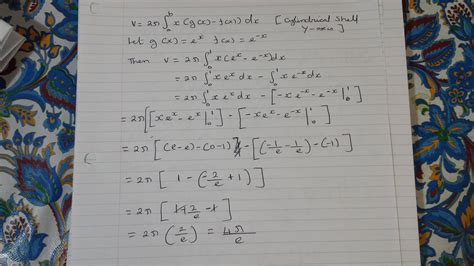 V = 2π ∫₀ᵇ x (g(x) - f(x)) dx [Cylindrical Shell
y-axis]
Let g(x) = eˣ f(x) = e⁻ˣ
Then V = 2π ∫₀¹ x (eˣ - e⁻ˣ) dx
= 2π ∫₀¹ x eˣ dx - ∫₀¹ x e⁻ˣ dx
= 2π ∫₀¹ x eˣ dx - [-x e⁻ˣ - e⁻ˣ |₀¹]
= 2π [[x eˣ - eˣ |₀¹] - [-x e⁻ˣ - e⁻ˣ |₀¹]
= 2π [(e - e) - (0 - 1)] - [(-1/e - 1/e) - (-1)]
= 2π [1 - (-2/e + 1)]
= 2π [1 + 2/e - 1]
= 2π (2/e) = 4π/e